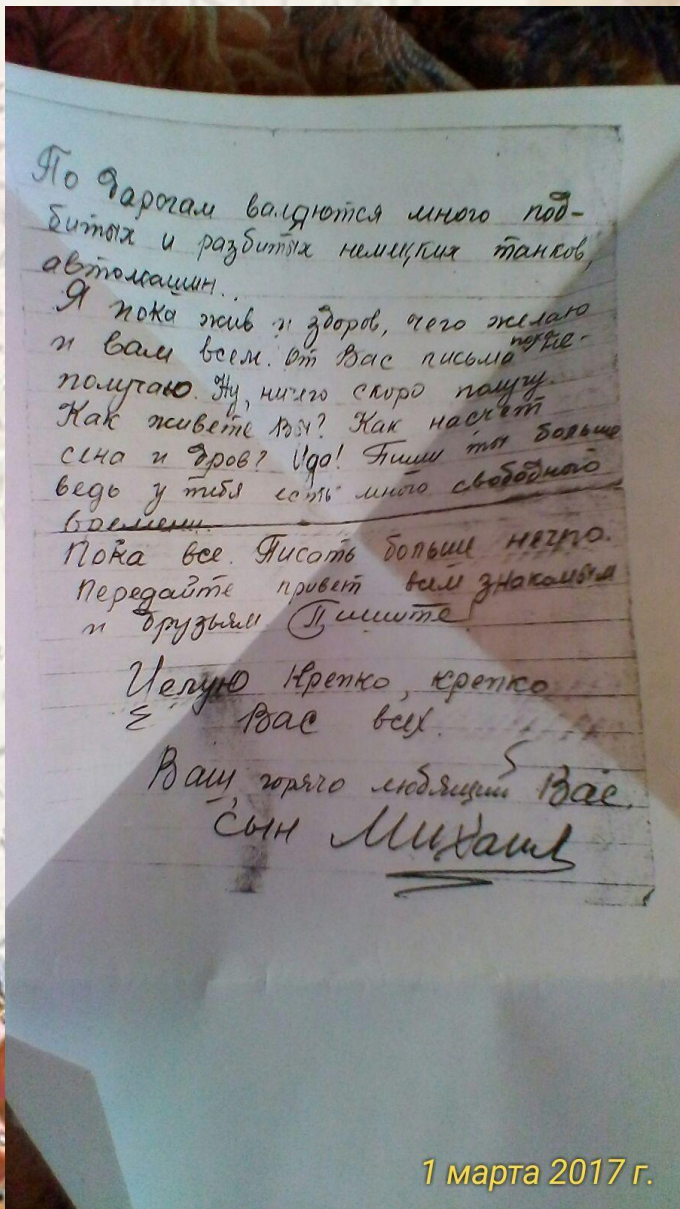 По дарогам валяются много под-
битых и разбитых немецких танков,
автомашин..
Я пока жив и здоров, чего желаю
и вам всем. От Вас письма пока не-
получаю. Ну, ничего скоро получу.
Как живете вы? Как насчет
сена и дров? Ида! Пиши ты больше
ведь у тебя есть много свободного
времени.
Пока все. Писать больше нечго.
Передайте привет всем знакомым
и друзьям Пишите
Целую Крепко, крепко
Вас всех.
Ваш, горячо любящий Вас.
сын Михаил
1 марта 2017 г.